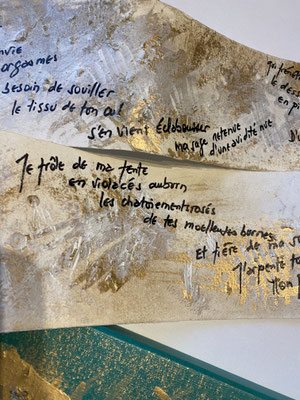 nvie
orgasmes
besoin de souiller
le tissu de ton
s'en vient éclabousser
ma rage retenue
d'une avidité nue
qu
le dess
en pi
Je frôle de ma fente
en violacés auborn
les chatoiements rosés
de tes moelleuses bornes
Et fière de ma s
J'arpente to